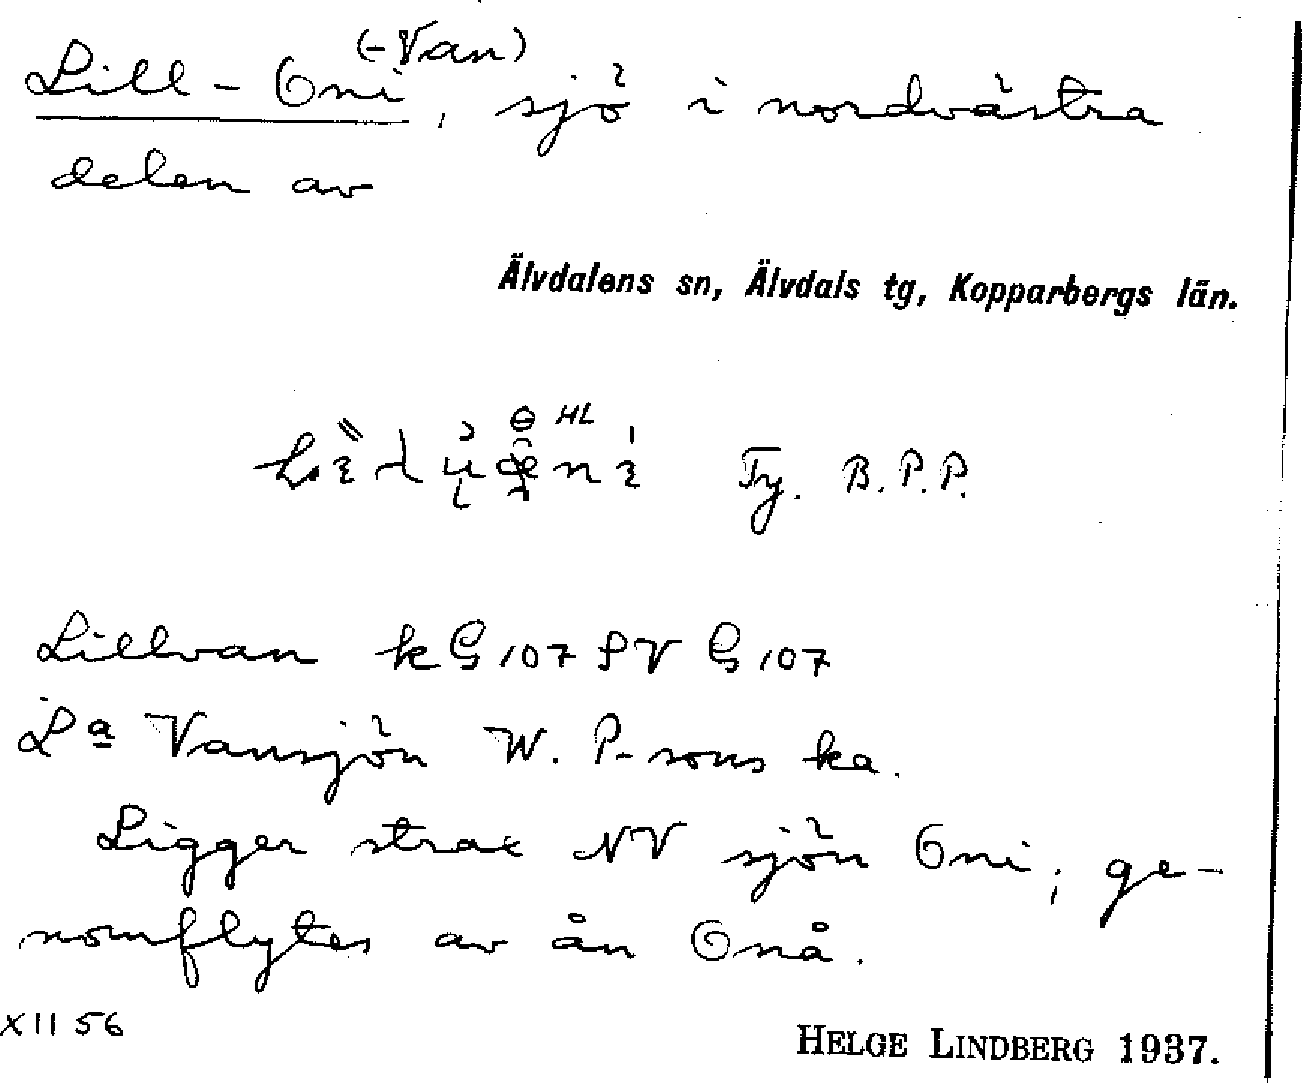 Lill-Oni (-Van), sjö i nordvästra
delen av
Älvdalens sn, Älvdals tg, Kopparbergs län.
HL
Fy. B.P.P.
Lillvan kG 107 SV G 107
La Vansjön W. P-sons ka.
Ligger strax NV sjön Oni; ge-
nomflytes av ån Onå.
XII 56
HELGE LINDBERG 1937.